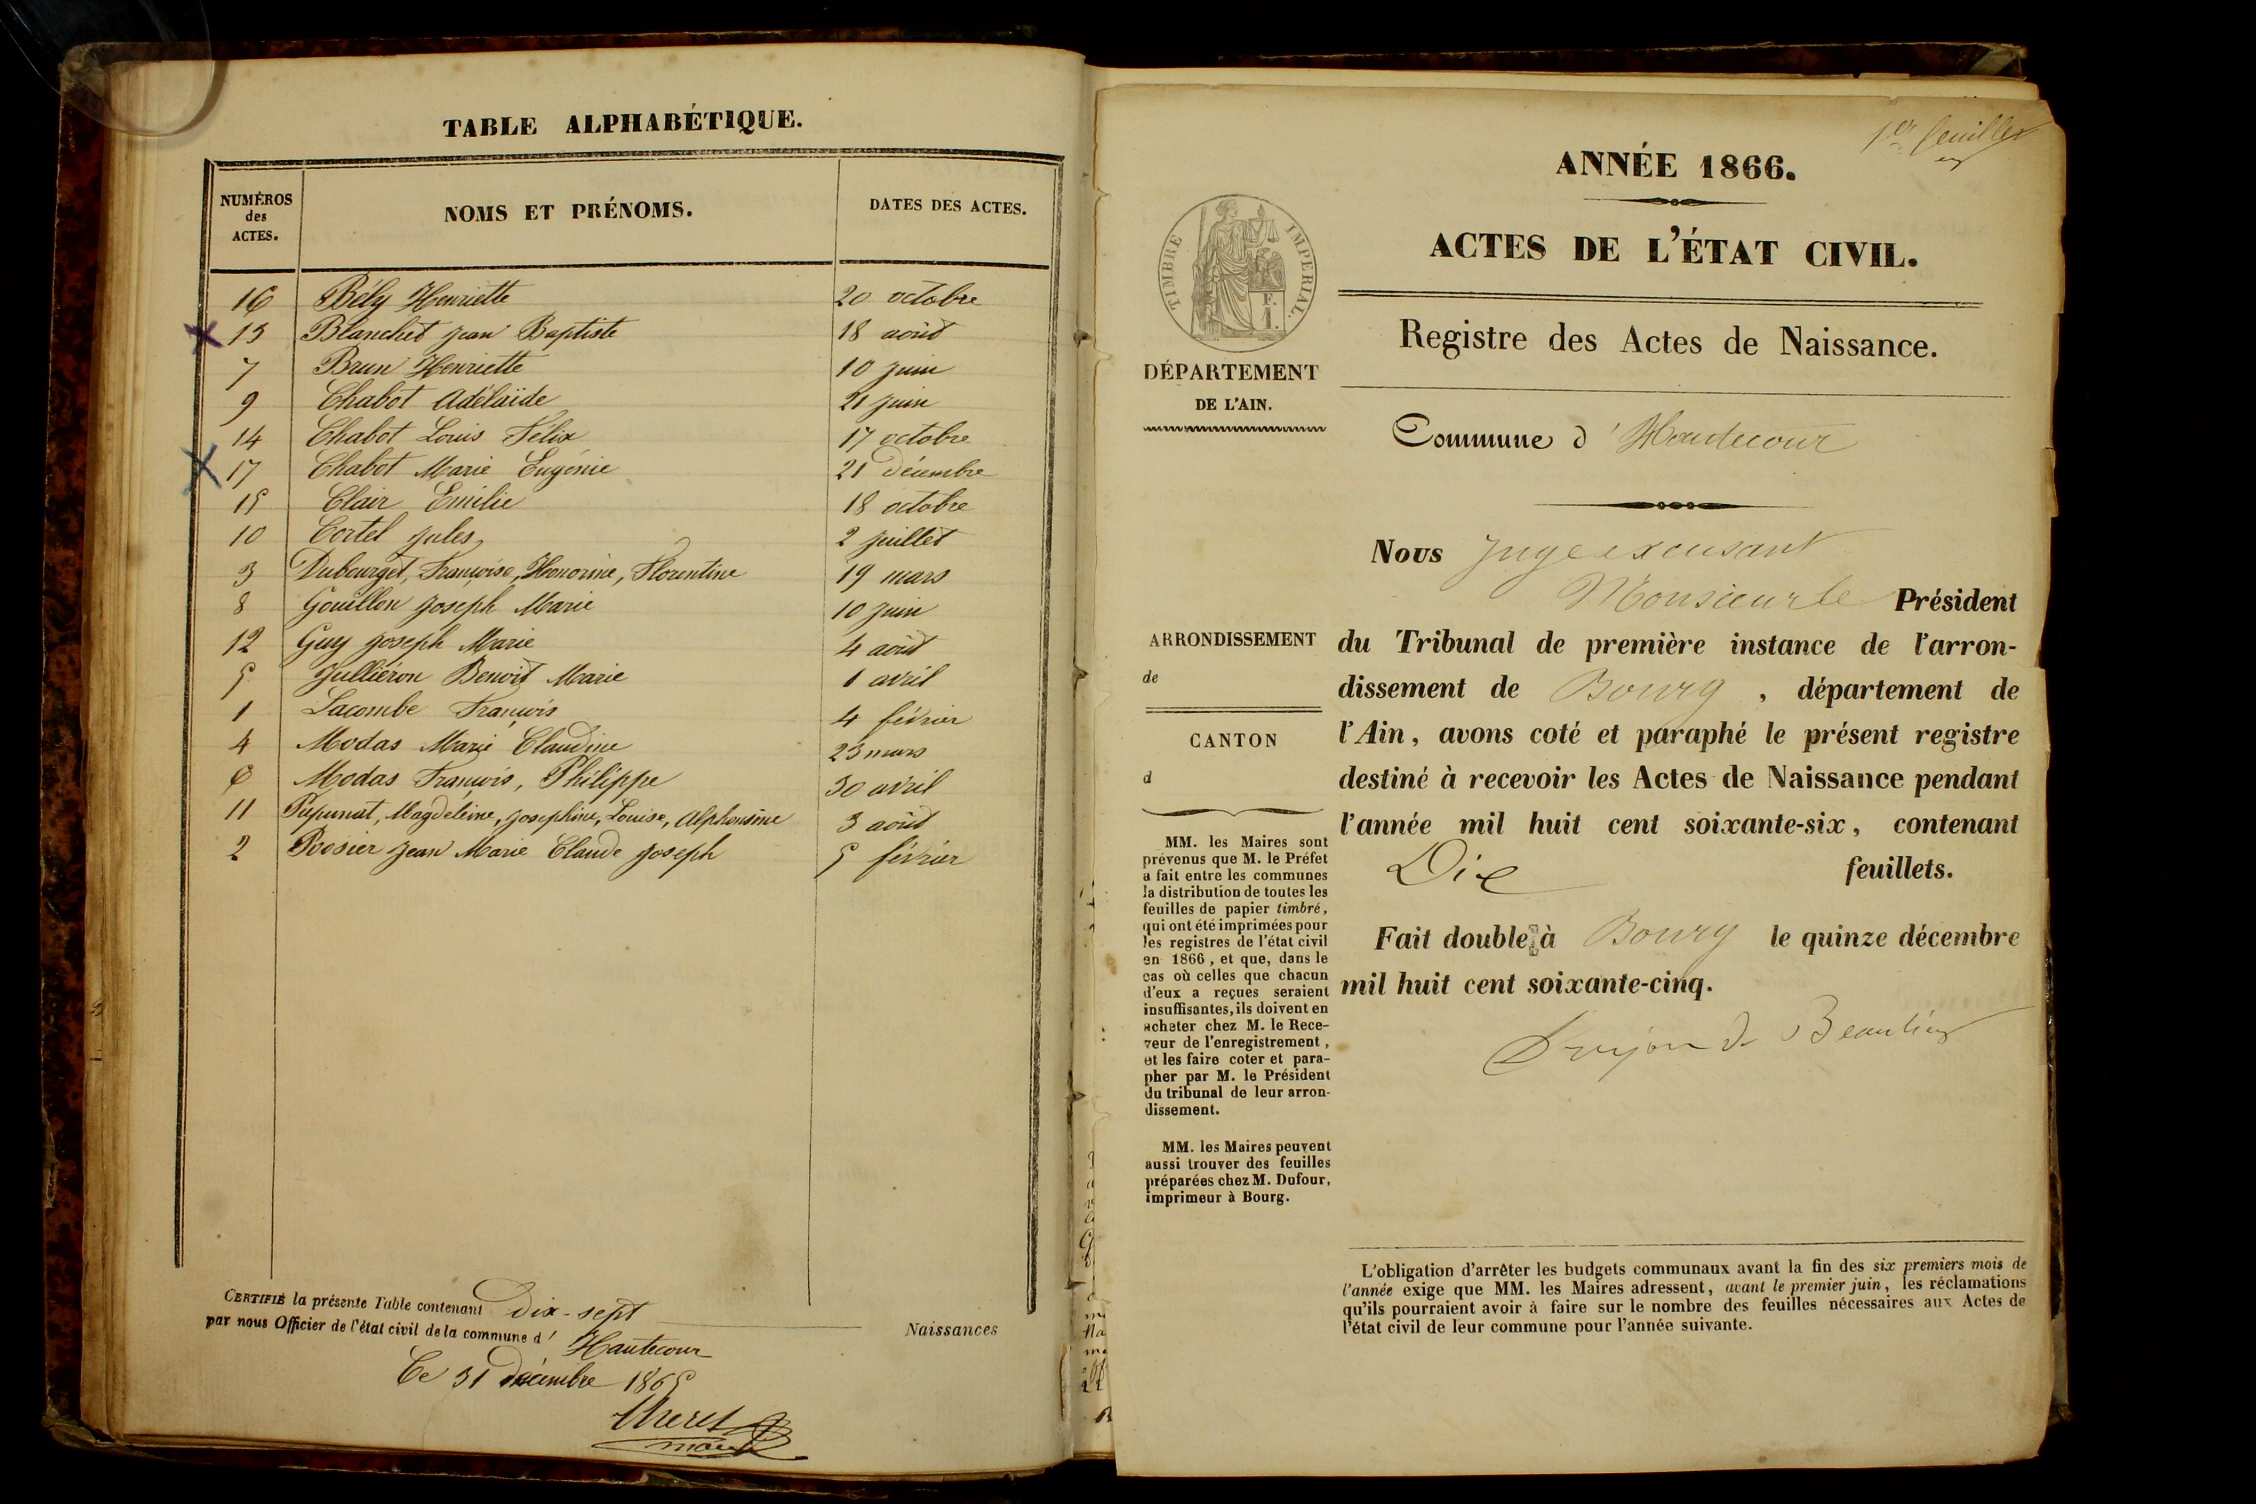 TABLE ALPHABÉTIQUE.
NUMÉROS des ACTES. NOMS ET PRÉNOMS. DATES DES ACTES.
16 Bély Henriette 20 octobre
13 Blanchet Jean Baptiste 18 août
7 Brun Henriette 10 juin
9 Chabot Adélaïde 21 juin
14 Chabot Louis Félix 17 octobre
17 Chabot Marie Eugénie 21 décembre
15 Clair Emilie 18 octobre
10 Cortel Jules 2 juillet
3 Dubourget, Françoise, Honorine, Florentine 19 mars
8 Gouillon Joseph Marie 10 juin
12 Guy Joseph Marie 4 août
5 Julliéron Benoit Marie 1 avril
1 Lacombe François 4 février
4 Modas Marie Claudine 23 mars
6 Modas François, Philippe 30 avril
11 Pupunat, Magdeleine, Joséphine, Louise, Alphonsine 3 août
2 Rosier Jean Marie Claude Joseph 5 février
CERTIFIÉ la présente Table contenant Dix-sept Naissances
par nous Officier de l'état civil de la commune d' Hautecour
Ce 31 Décembre 1865
maire
1er feuillet
ANNÉE 1866.
ACTES DE L'ÉTAT CIVIL.
TIMBRE IMPÉRIAL.
F.
1.
Registre des Actes de Naissance.
DÉPARTEMENT
DE L'AIN.
Commune d' Hautecour
Nous Juge excusant
Monsieur le Président
ARRONDISSEMENT
de
du Tribunal de première instance de l'arron-
dissement de Bourg, département de
l'Ain, avons coté et paraphé le présent registre
destiné à recevoir les Actes de Naissance pendant
l'année mil huit cent soixante-six, contenant
Dix feuillets.
Fait double à Bourg le quinze décembre
mil huit cent soixante-cinq.
Drujon de Beaulieu
CANTON
d
MM. les Maires sont
prévenus que M. le Préfet
a fait entre les communes
la distribution de toutes les
feuilles de papier timbré,
qui ont été imprimées pour
les registres de l'état civil
en 1866, et que, dans le
cas où celles que chacun
d'eux a reçues seraient
insuffisantes, ils doivent en
acheter chez M. le Rece-
veur de l'enregistrement,
et les faire coter et para-
pher par M. le Président
du tribunal de leur arron-
dissement.
MM. les Maires peuvent
aussi trouver des feuilles
préparées chez M. Dufour,
imprimeur à Bourg.
L'obligation d'arrêter les budgets communaux avant la fin des six premiers mois de
l'année exige que MM. les Maires adressent, avant le premier juin, les réclamations
qu'ils pourraient avoir à faire sur le nombre des feuilles nécessaires aux Actes de
l'état civil de leur commune pour l'année suivante.